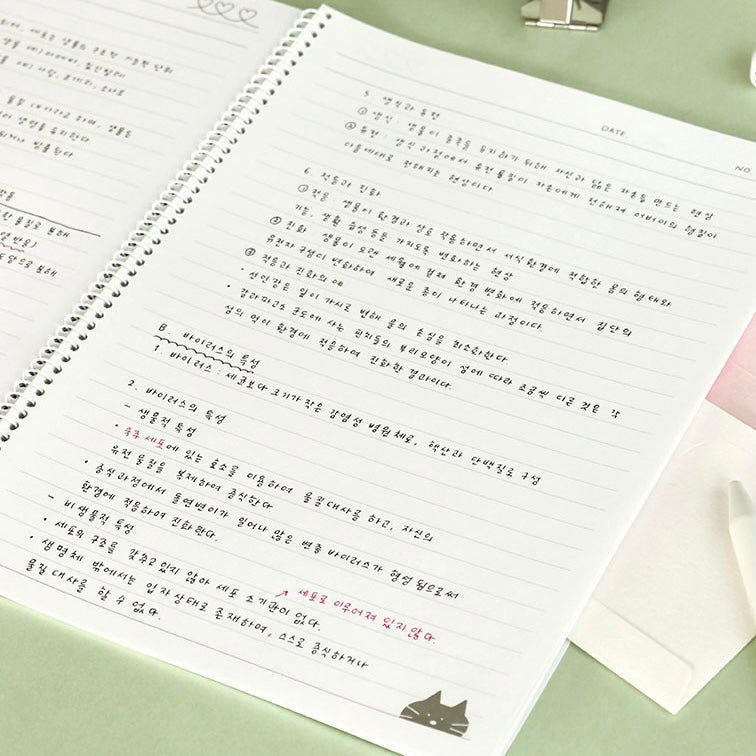 물질로 분해
DATE.
NO
5. 생식과 유전
① 생식 : 생물이 종족을 유지하기 위해 자신과 닮은 자손을 만드는 현상
② 유전 : 생식 과정에서 유전 물질이 자손에게 전해져 어버이의 형질이
다음 세대로 전해지는 현상이다.
6. 적응과 진화
① 적응 생물이 환경과 상호 작용하면서 서식환경에 적합한 몸의 형태와
기능, 생활 습성 등을 가지도록 변화하는 현상
② 진화 생물이 오랜 세월에 걸쳐 환경 변화에 적응하면서 집단의
유전자 구성이 변화하여 새로운 종이 나타나는 과정이다.
③ 적응과 진화의 예
• 선인장은 잎이 가시로 변해 물의 손실을 최소화한다.
• 갈라파고스 군도에 사는 핀치들의 부리모양이 섬에 따라 조금씩 다른 것은 각
섬의 먹이 환경에 적응하여 진화한 결과이다.
B. 바이러스의 특성
1. 바이러스 : 세균보다 크기가 작은 감염성 병원체로, 핵산과 단백질로 구성
2. 바이러스의 특성
- 생물적 특성
• 숙주 세포에 있는 효소를 이용하여 물질대사를 하고, 자신의
유전 물질을 복제하여 증식한다
• 증식 과정에서 돌연변이가 일어나 많은 변종 바이러스가 형성 됨으로써
환경에 적응하며 진화한다.
- 비생물적 특성
• 세포의 구조를 갖추고 있지 않아 세포 소기관이 없다.
↗ 세포로 이루어져 있지 않다.
• 생명체 밖에서는 입자 상태로 존재하며, 스스로 증식하거나
물질대사를 할 수 없다.